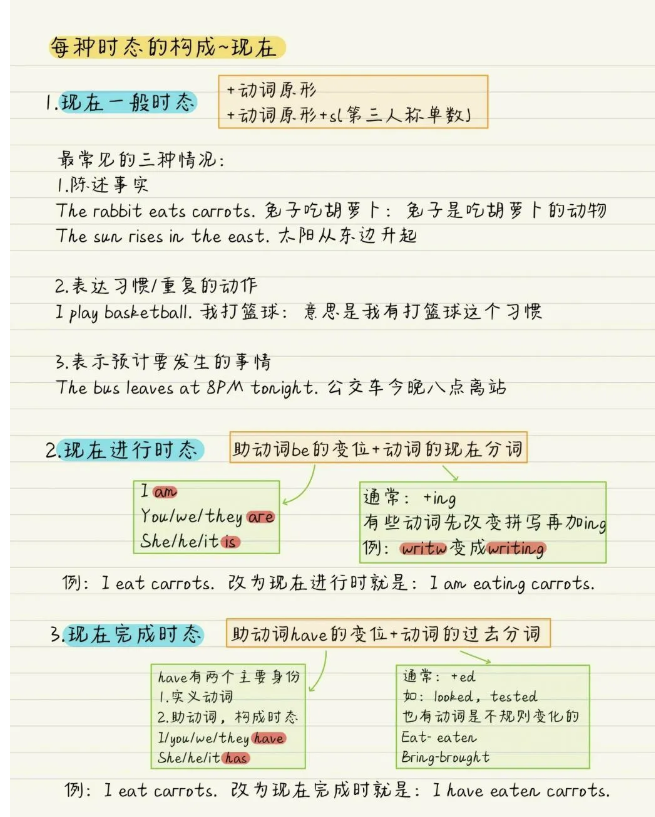 每种时态的构成~现在
1.现在一般时态
+动词原形
+动词原形+s(第三人称单数)
最常见的三种情况:
1.陈述事实
The rabbit eats carrots. 兔子吃胡萝卜: 兔子是吃胡萝卜的动物
The sun rises in the east. 太阳从东边升起
2.表达习惯/重复的动作
I play basketball. 我打篮球: 意思是我有打篮球这个习惯
3.表示预计要发生的事情
The bus leaves at 8PM tonight. 公交车今晚八点离站
2.现在进行时态
助动词be的变位+动词的现在分词
I am
You/we/they are
She/he/it is
通常: +ing
有些动词先改变拼写再加ing
例: writw变成writing
例: I eat carrots. 改为现在进行时就是: I am eating carrots.
3.现在完成时态
助动词have的变位+动词的过去分词
have有两个主要身份
1.实义动词
2.助动词, 构成时态
I/you/we/they have
She/he/it has
通常: +ed
如: looked, tested
也有动词是不规则变化的
Eat- eaten
Bring-brought
例: I eat carrots. 改为现在完成时就是: I have eaten carrots.